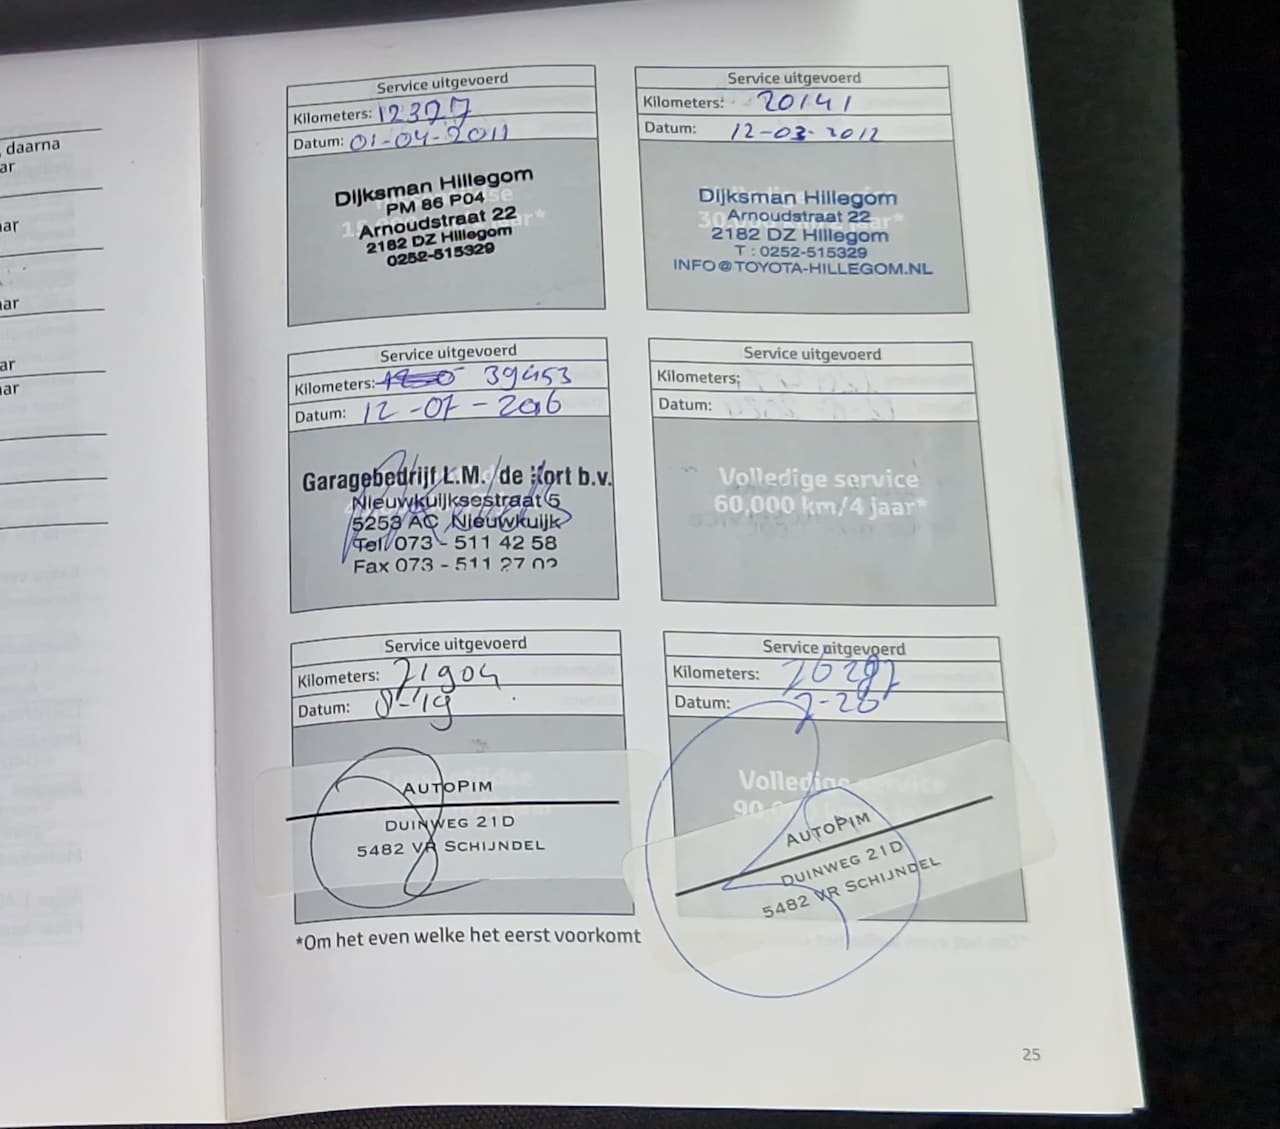 daarna
ar
aar
aar
ar
aar
Service uitgevoerd
Kilometers: 12377
Datum: 01-04-2011
Dijksman Hillegom
PM 86 P04
Arnoudstraat 22
2182 DZ Hillegom
0252-515329
Service uitgevoerd
Kilometers: 20141
Datum: 12-03-2012
Dijksman Hillegom
Arnoudstraat 22
2182 DZ Hillegom
T : 0252-515329
INFO@TOYOTA-HILLEGOM.NL
Service uitgevoerd
Kilometers: 39453
Datum: 12-07-2016
Garagebedrijf L.M. de Kort b.v.
Nieuwkuijksestraat 5
5253 AC Nieuwkuijk
Tel 073 - 511 42 58
Fax 073 - 511 27 02
Service uitgevoerd
Kilometers:
Datum:
Volledige service
60,000 km/4 jaar*
Service uitgevoerd
Kilometers: 71904
Datum: 8-'19
AUTOPIM
DUINWEG 21D
5482 VR SCHIJNDEL
Service uitgevoerd
Kilometers:
Datum:
Volledige service
AUTOPIM
DUINWEG 21D
5482 VR SCHIJNDEL
*Om het even welke het eerst voorkomt
25